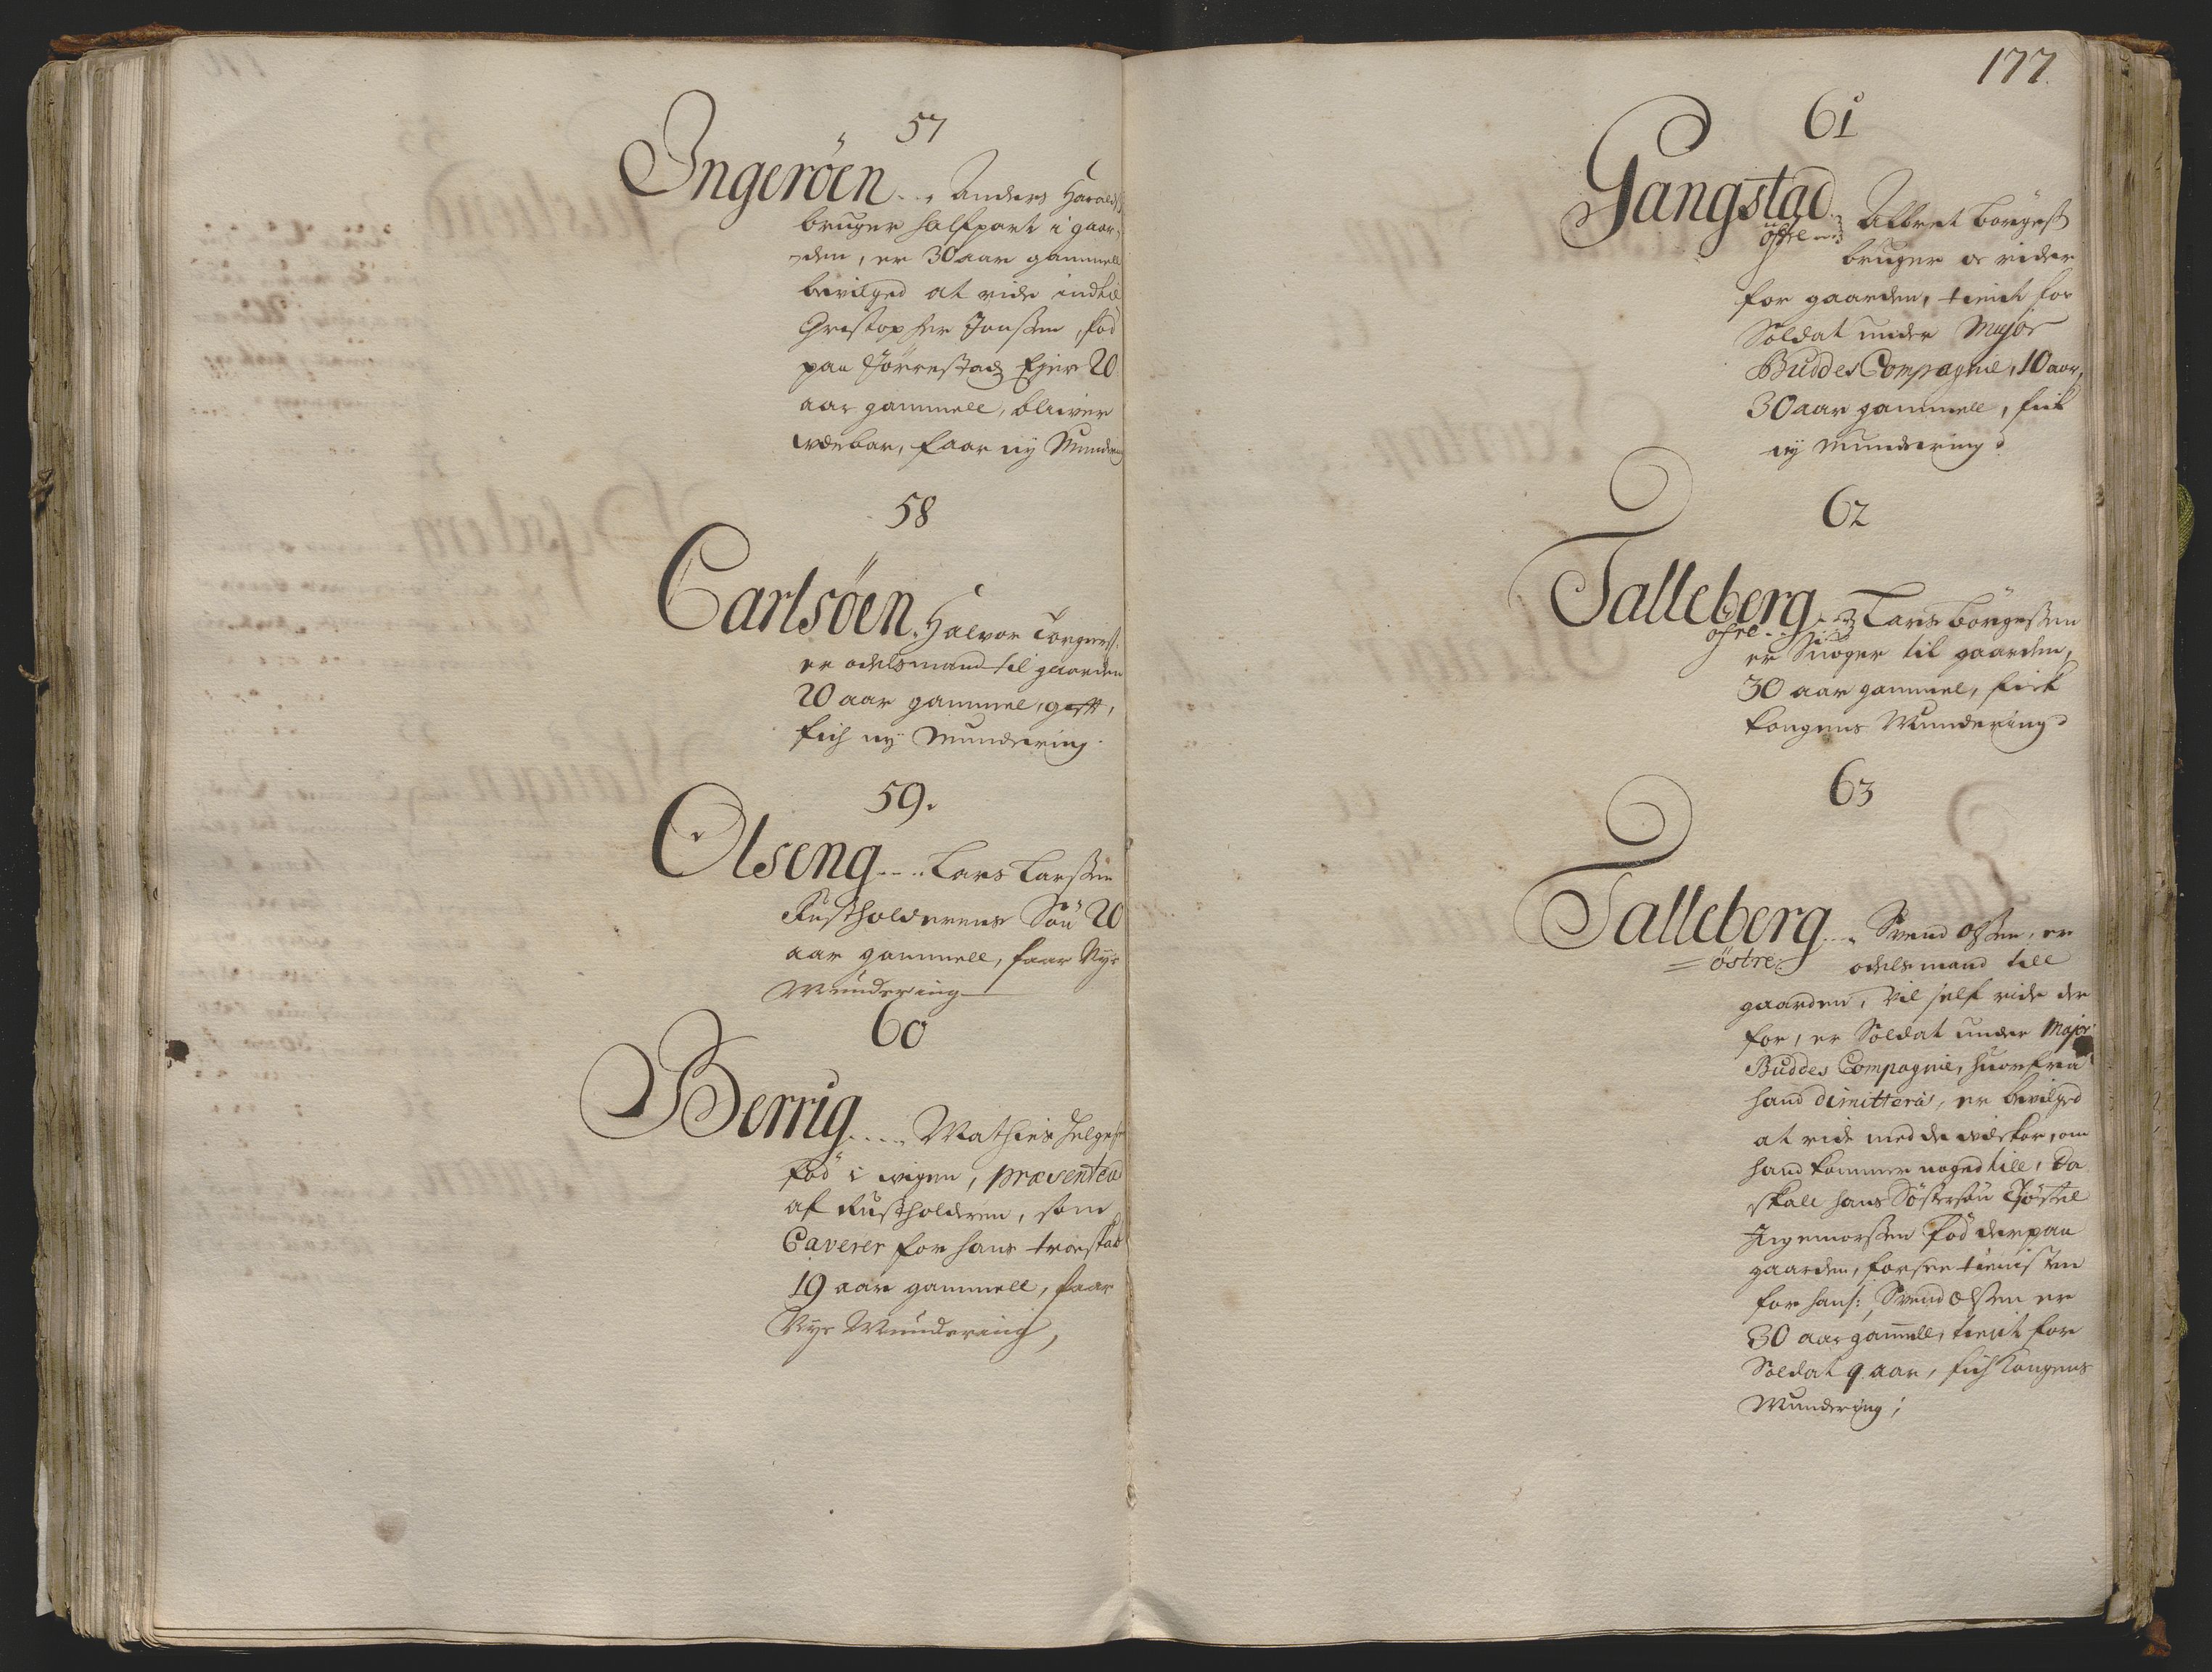 57
Ingeröen... Anders Haralds
bruger halfpart i gaar-
den, er 30 aar gammell
bevilged at ride indtil
Christopher Jonssen, fød
paa Jörrestad Ejer 20
aar gammell, bliver
værbar, faar ny Munder
58
Carlsöen. Halvor Torgerss:
er odelsmand til gaarden
20 aar gammel, gift,
fich ny Mundering.
59.
Olseng.... Lars Larssen
Rustholderens Sön 20
aar gammell, faar Nye
Mundering
60
Berrig..... Mathies Helges
fød i wigen, præsentered
af Rustholderen, som
Caverer for hans troeskab
19 aar gammell, faar
Nye Mundering,
177.
61
Gangstad
öfre Albret Börgess
bruger oc rider
for gaarden, tient for
Soldat under Major
Buddes Compagnie, 10 aar,
30 aar gammell, fik
ny Mundering
62
Talleberg... Lars Börgessen
öfre..
er Svoger til gaarden,
30 aar gammel, fick
kongens Mundering
63
Talleberg... Svend Olssen, er
östre. odelsmand till
gaarden, vil self ride der
for, er Soldat under Major
Buddes Compagnie, huorfra
hand dimitteris, er bevilged
at ride med de vilkor, om
hand kommer noged till, da
skall hans Söstersön Kjöstel
Ingemorssen fød der paa
gaarden, forsee tienisten
for hans: Svend Olssen er
30 aar gamell, tient for
Soldat 9 aar, fich Kongens
Mundering;